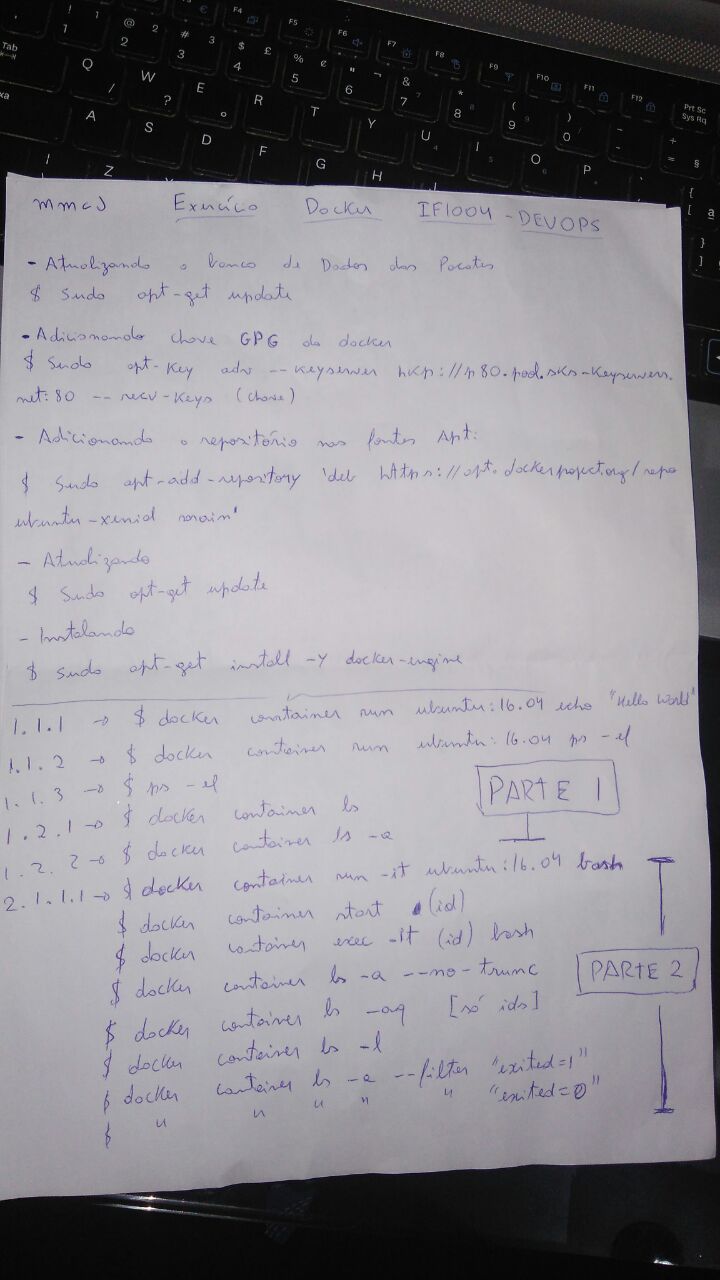 mmcJ Exercício Docker IF1004 - DEVOPS
- Atualizando o banco de Dados dos Pacotes
$ Sudo apt-get update
- Adicionando chave GPG do docker
$ Sudo apt-key adv --keyserver hkp://p80.pool.sks-keyservers.
net:80 --recv-keys (chave)
- Adicionando o repositório nas fontes Apt:
$ Sudo apt-add-repository 'deb https://apt.dockerproject.org/repo
ubuntu-xenial main'
- Atualizando
$ Sudo apt-get update
- Instalando
$ sudo apt-get install -y docker-engine
1.1.1 → $ docker container run ubuntu:16.04 echo "Hello World"
1.1.2 → $ docker container run ubuntu:16.04 ps -ef
1.1.3 → $ ps -ef
PARTE 1
1.2.1 → $ docker container ls
1.2.2 → $ docker container ls -a
2.1.1.1 → $ docker container run -it ubuntu:16.04 bash
$ docker container start (id)
$ docker container exec -it (id) bash
PARTE 2
$ docker container ls -a --no-trunc
$ docker container ls -aq [só ids]
$ docker container ls -l
$ docker container ls -a --filter "exited=1"
$ " " " " " "exited=0"